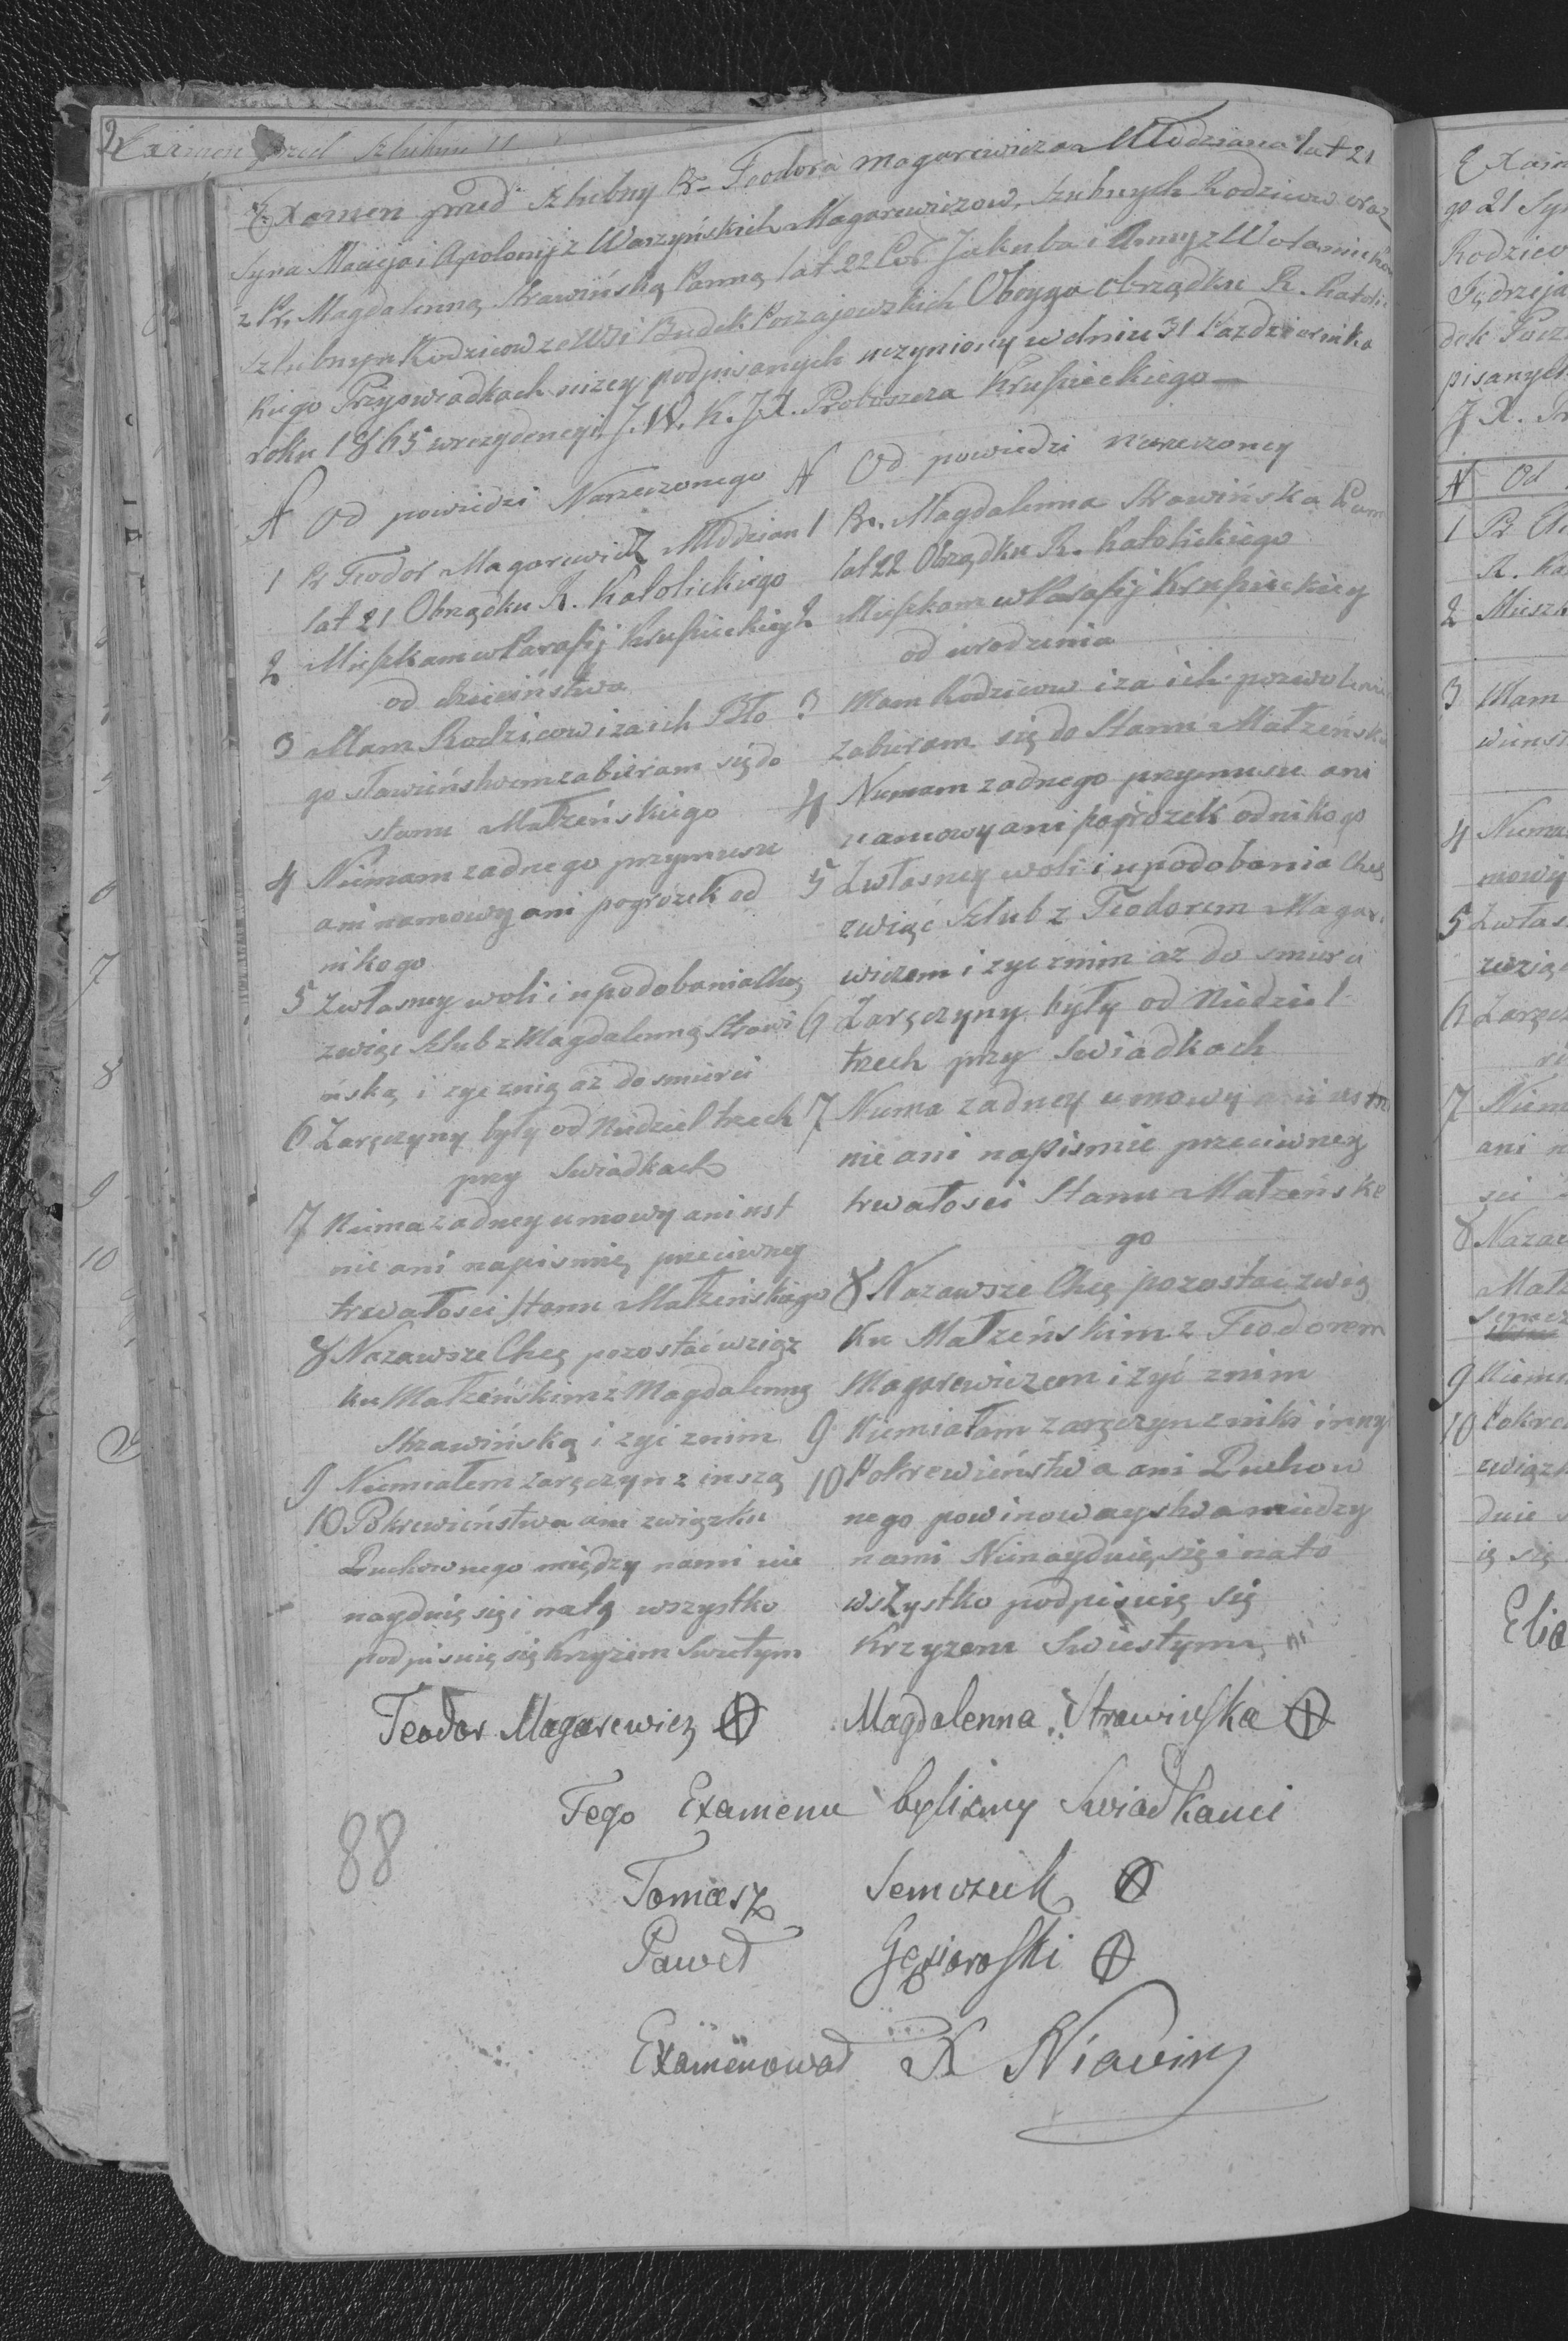 Examen przed Szlubny Pr. Teodora Magarewicza Młodziana lat 21
Syna Macieja i Apolonij z Warzyńskich Magarewiczow, szlubnych Rodzicow oraz
z Pr. Magdalenną Strawińską Panną lat 22 Cor Jakuba i Anny z
szlubnych Rodzicow ze Wsi Budek Poczajewskich Oboyga obrządku R. Katolic
kiego Przyswiadkach nizey podpisanych uczyniony w dniu 31 Pazdziernika
roku 1865 wrezydencyi J. W. K. J. X. Proboszcza Krupieckiego
N Od powiedzi Narzeczonego
1 Pr Teodor Magarewicz Młodzian
lat 21 Obrządku R. Katolickiego
2 Mieszkam w Parafij Krupieckiey
od dzieciństwa
3 Mam Rodzicow i za ich Bło
go sławieństwem zabieram się do
stanu Małżeńskiego
4 Niemam zadnego przymusu
ani namowy ani pogrozek od
nikogo
5 Zwłasney woli i upodobania Chcę
zwiąc szlub z Magdalenną Strawi
ńską i zyc znią az do smierci
6 Zaręczyny były od Niedziel trzech
przy Swiadkach
7 Niema zadney umowy ani ust
nie ani napismie, przeciwney
trwałosci Stanu Małzeńskiego
8 Nazawsze Chcę pozostać wziąz
ku Małżeńskim z Magdalenną
Strawińską i zyc znim
9 Niemiałem zaręczyn z inszą
10 Pokrewieństwa ani związku
Duchownego między nami nie
naydnię się i natę wszystko
podpisuię się Krzyżem Swiętym
N Od powiedzi narzeczoney
1 Pr. Magdalenna Strawińska Pann
lat 22 Obrządku R. Katolickiego
2 Mieszkam w Parafij Krupieckiey
od urodzenia
3 Mam Rodzicow i za ich pozwoleni
zabieram się do Stanu Małżeńsk
4 Niemam zadnego przymusu ani
namowy ani pogrozek od nikogo
5 Zwłasney woli i upodobania Chcę
zwiąć Szlub z Teodorem Magare
wiczem i zyc znim az do smierci
6 Zaręczyny były od Niedziel
trzech przy Swiadkach
7 Niema zadney umowy ani ust
nie ani napismie przeciwney
trwałosci Stanu Małżeńske
go
8 Nazawsze Chcę pozostac zwią
ku Małżeńskim z Teodorem
Magarewiczem i zyć znim
9 Niemiałam zaręczyn zniki inny
10 Pokrewieństwa ani Duchow
nego powinowaystwa miedzy
nami Nienayduię się i na to
wszystko podpisuię się
Krzyzem Swiestym
Teodor Magarewicz
Magdalenna Strawińska
Tego Examenu bylismy Swiadkami
Tomasz Semczuk
Paweł Gęsioroski
88
Examenował X
Exa
go 21 Sy
Rodzico
Jędrzeja
dek Pocz
pisanych
J X. Pr
N Od
1 Pr El
R. Ka
2 Mieszk
3 Mam
4 Niema
mowy
5 Zwłas
zwią
6 Zaręcz
7 Niem
ani n
8 Nazaw
Małż
9 Niemi
10 Pokrew
związk
ię się